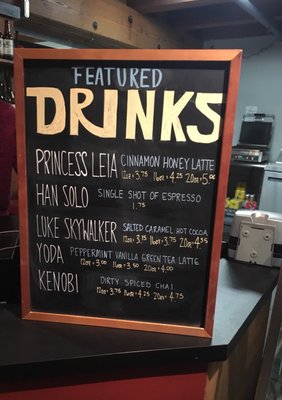 FEATURED
DRINKS
PRINCESS LEIA CINNAMON HONEY LATTE
12oz 3.75 16oz 4.25 20oz 5.00
HAN SOLO SINGLE SHOT OF ESPRESSO
1.75
LUKE SKYWALKER SALTED CARAMEL HOT COCOA
12oz 3.15 16oz 3.75 20oz 4.35
YODA PEPPERMINT VANILLA GREEN TEA LATTE
12oz 3.00 16oz 3.50 20oz 4.00
KENOBI DIRTY SPICED CHAI
12oz 3.75 16oz 4.25 20oz 4.75